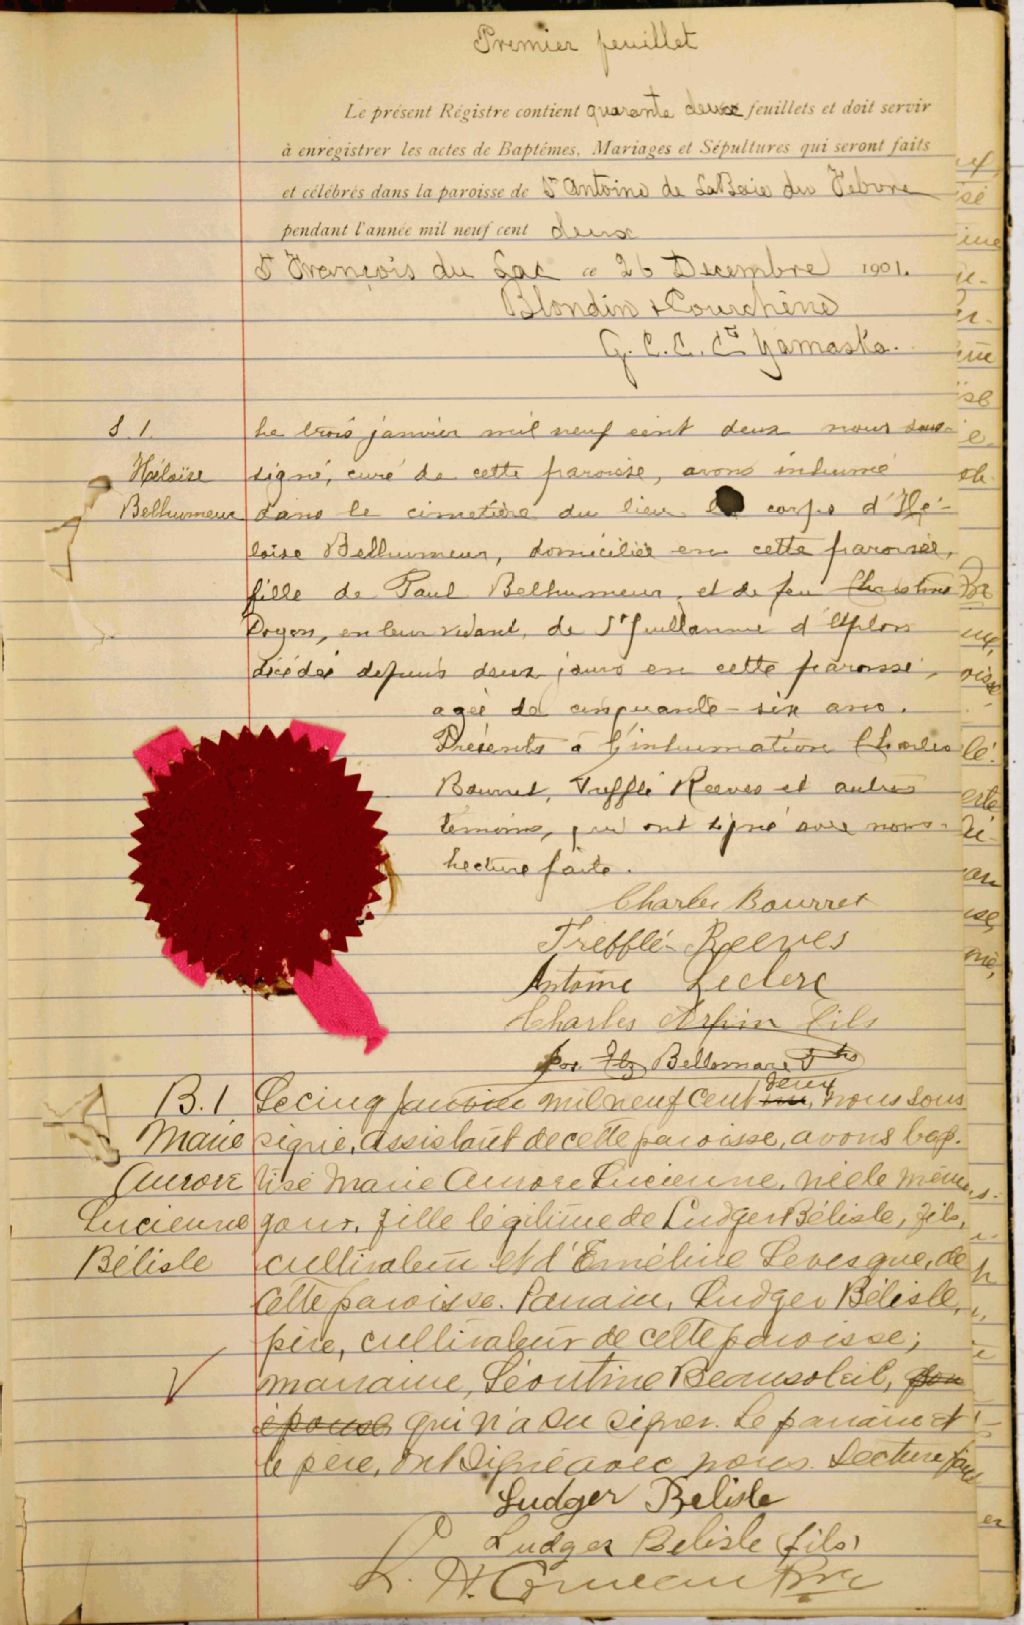 Premier feuillet
Le présent Régistre contient quarante deux feuillets et doit servir
à enregistrer les actes de Baptêmes, Mariages et Sépultures qui seront faits
et célébrés dans la paroisse de St Antoine de LaBaie du Febvre
pendant l'année mil neuf cent deux
St François du Lac ce 26 Decembre 1901.
Blondin & Courchêne
G. C. C. Ct Yamaska.
S. 1.
Le trois janvier mil neuf cent deux nous sous-
Héloïse
signé, curé de cette paroisse, avons inhumé
Belhumeur
dans le cimetière du lieu le corps d'Hé-
loise Belhumeur, domiciliée en cette paroisse,
fille de Paul Belhumeur, et de feu Christine
Doyon, en leur vivant, de St Guillaume d'Upton
décédée depuis deux jours en cette paroisse,
agée de cinquante-six ans.
Présents à l'inhumation Charles
Bourret, Trefflé Reeves et autres
témoins, qui ont signé avec nous.
Lecture faite.
Charles Bourret
Trefflé Reeves
Antoine Leclerc
Charles Arpin fils
Bellemare
B. 1
Le cinq janvier mil neuf cent deux, nous sous
Marie
signé, assistant de cette paroisse, avons bap-
Aurore
tisé Marie Aurore Lucienne, née le même
Lucienne
jour, fille légitime de Ludger Bélisle, fils,
Bélisle
cultivateur et d'Eméline Levesque, de
cette paroisse. Parrain, Ludger Bélisle,
père, cultivateur de cette paroisse;
marraine, Léontine Beausoleil, son
épouse, qui n'a su signer. Le parrain et
le père, ont signé avec nous. Lecture faite
Ludger Belisle
Ludger Belisle (fils)